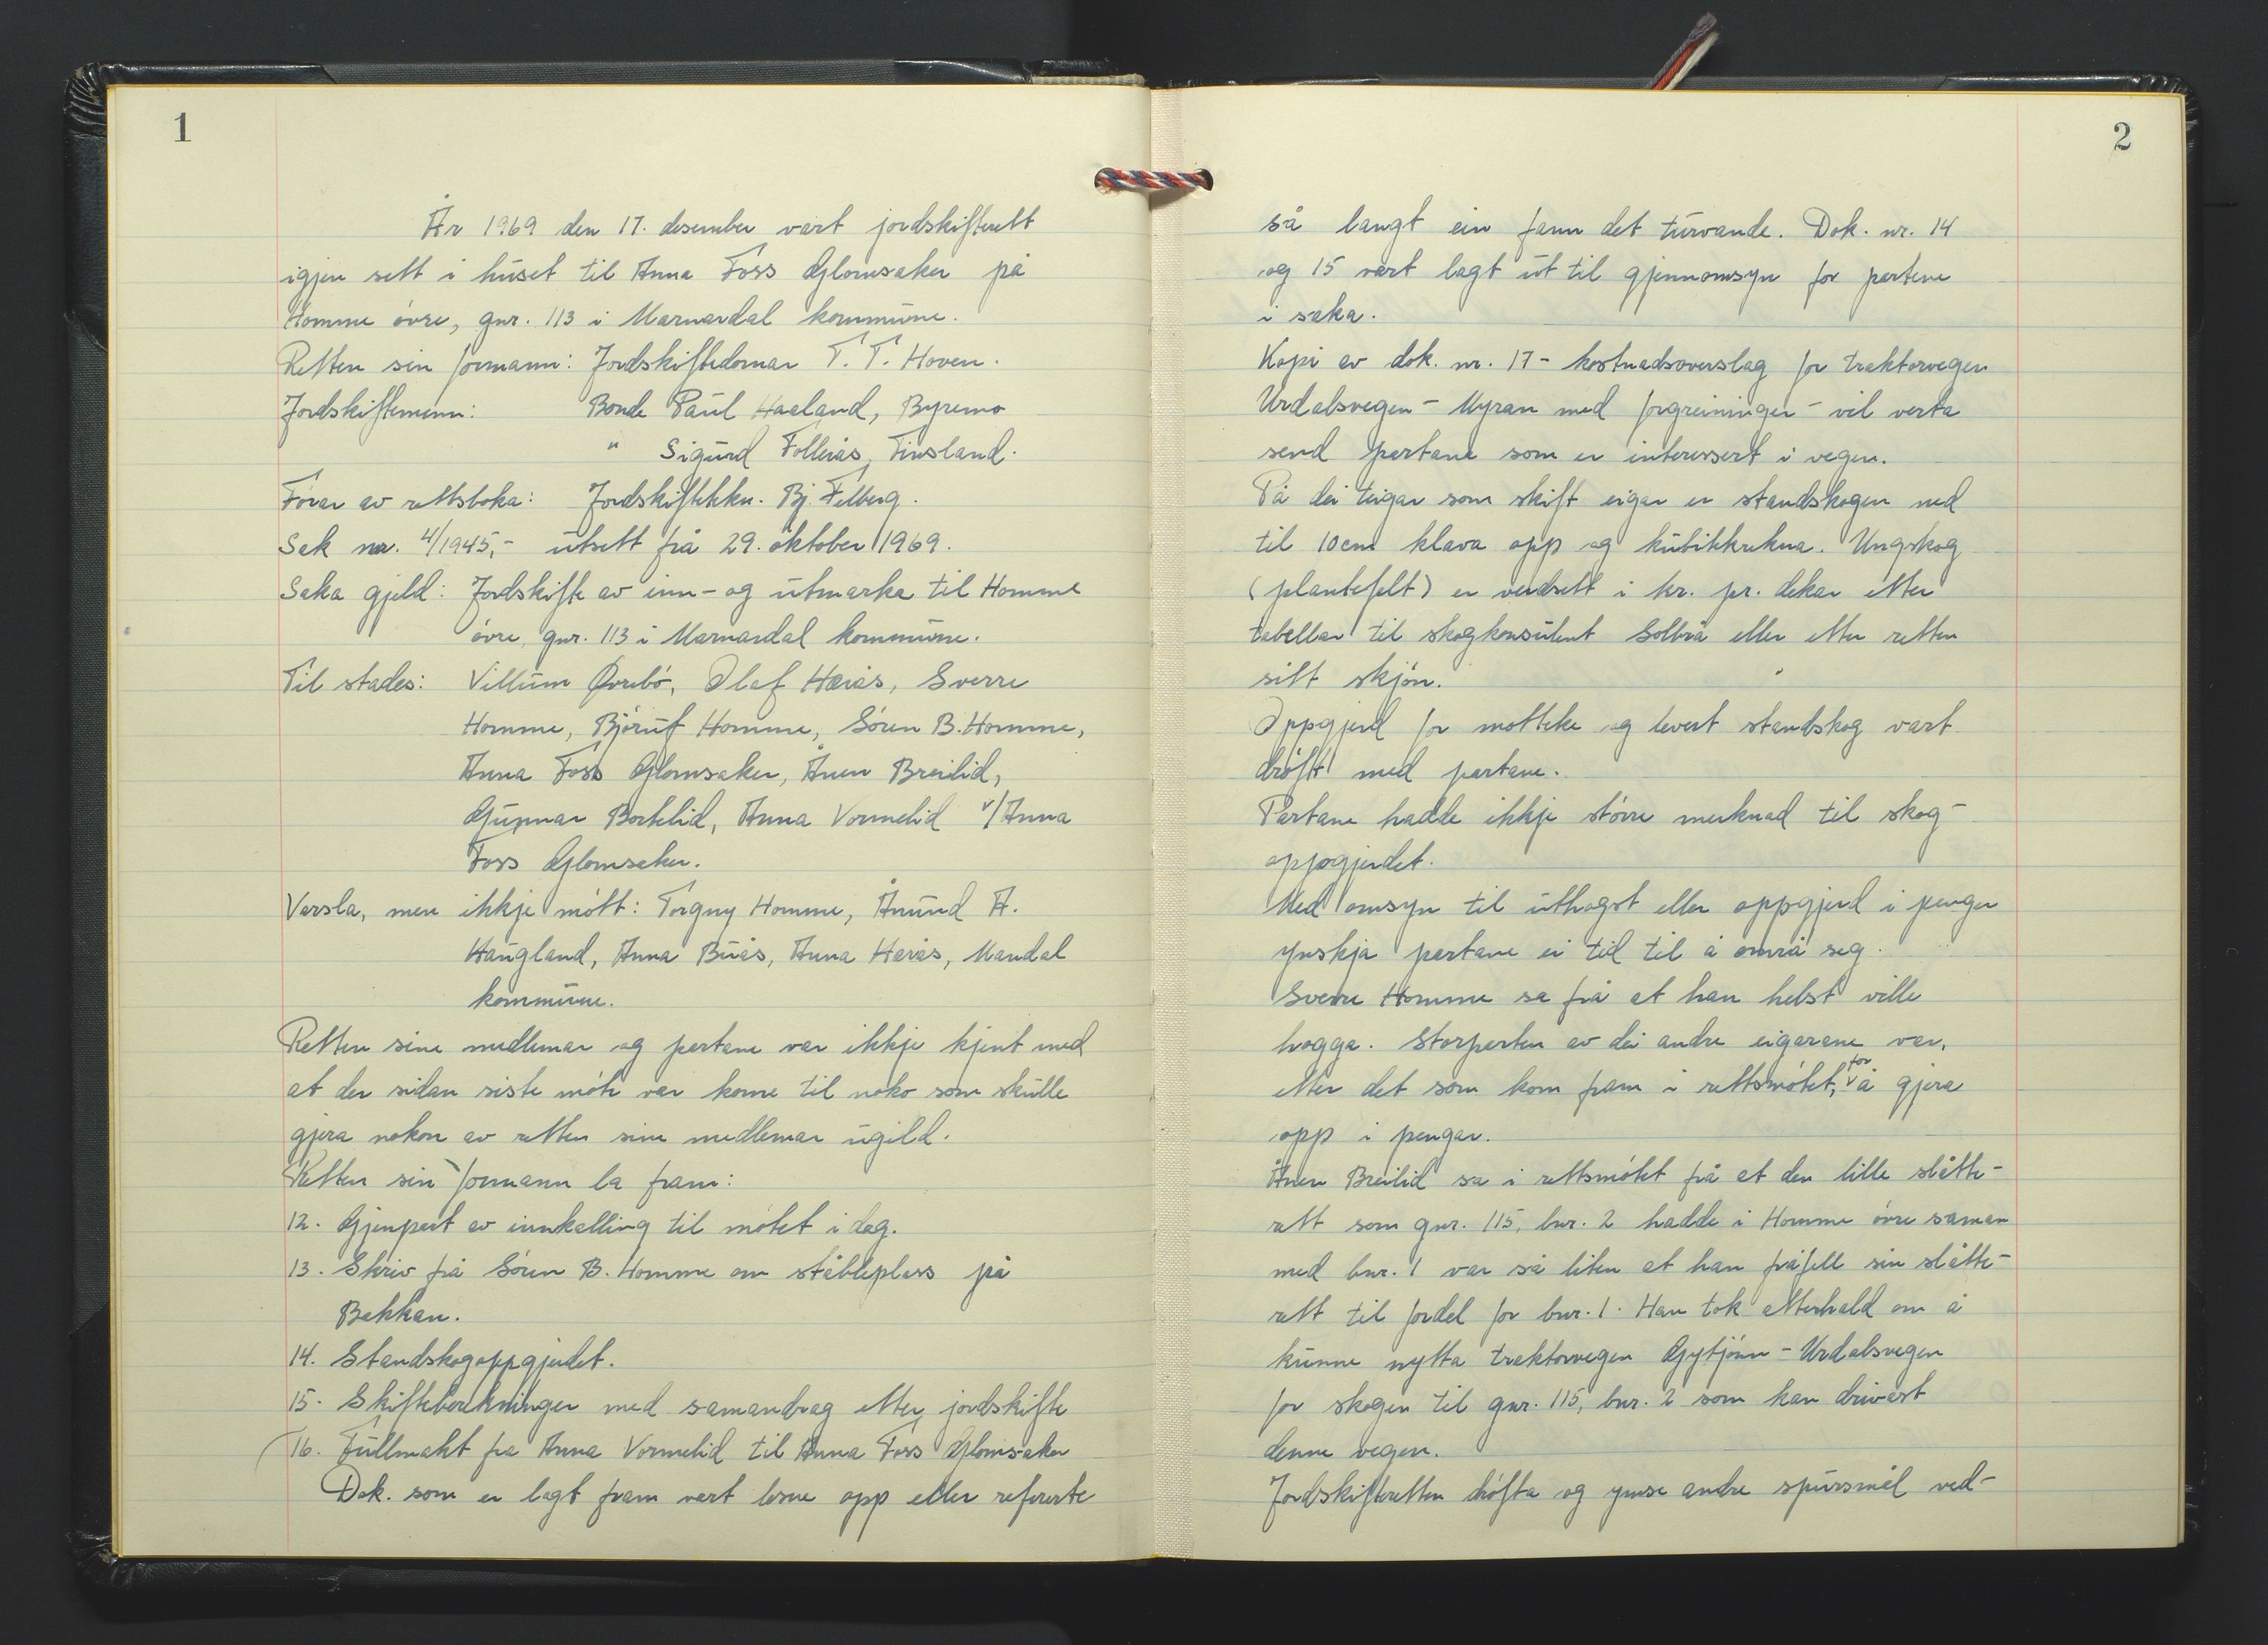 1
År 1969 den 17. desember vart jordskifterett
igjen sett i huset til Anna Foss Glomsaker på
Homme øvre, gnr. 113 i Marnardal kommune.
Retten sin formann: Jordskiftedomar T. T. Hoven.
Jordskiftemenn: Bonde Paul Haaland, Byremo
" Sigurd Follerås, Finsland.
Førar av rettsboka: Jordskiftekkn. Bj. Felberg.
Sak nr. 4/1945,- utsett frå 29. oktober 1969.
Saka gjeld: Jordskifte av inn- og utmarka til Homme
øvre, gnr. 113 i Marnardal kommune.
Til stades: Villum Øvrebø, Olaf Høiås, Sverre
Homme, Bjørulf Homme, Søren B. Homme,
Anna Foss Glomsaker, Ånen Breilid,
Gunnar Bortelid, Anna Vormelid v/Anna
Foss Glomsaker.
Varsla, men ikkje møtt: Torgny Homme, Ånund A.
Haugland, Anna Buås, Anna Høiås, Mandal
kommune.
Retten sine medlemar og partane var ikkje kjent med
at der sidan siste møte var kome til noko som skulle
gjera nokon av retten sine medlemar ugild.
Retten sin formann la fram:
12. Gjenpart av innkalling til møtet i dag.
13. Skriv frå Søren B. Homme om støbleplass på
Bakkan.
14. Standskogoppgjerdet.
15. Skifteberekninger med samandrag etter jordskifte
16. Fullmakt fra Anna Vormelid til Anna Foss Glomsaker
Dok. som er lagt fram vart lesne opp eller refererte
2
så langt ein fann det turvande. Dok. nr. 14
og 15 vart lagt ut til gjennomsyn for partene
i saka.
Kopi av dok. nr. 17 - kostnadsoverslag for traktorvegen
Urdalsvegen - Myran med forgreininger - vil verta
send partane som er interessert i vegen.
På dei teigar som skift eigar er standskogen ned
til 10 cm klava opp og kubikkrekna. Ungskog
(plantefelt) er verdsett i kr. pr. dekar etter
tabellar til skogkonsulent Solbrå eller etter retten
sitt skjøn.
Oppgjerd for motteke og levert standskog vart
drøft med partane.
Partane hadde ikkje større merknad til skog-
oppgjerdet.
Med omsyn til uthogst eller oppgjerd i pengar
ynskja partane ei tid til å områ seg.
Sverre Homme sa frå at han helst ville
hogga. Storparten av dei andre eigarane var,
etter det som kom fram i rettsmøtet, for å gjera
opp i pengar.
Ånen Breilid sa i rettsmøtet frå at den lille slåtte-
rett som gnr. 115, bnr. 2 hadde i Homme øvre saman
med bnr. 1 var så liten at han fråfell sin slåtte-
rett til fordel for bnr. 1. Han tok etterhald om å
kunne nytta traktorvegen Gytjønn - Urdalsvegen
for skogen til gnr. 115, bnr. 2 som kan drivast
denne vegen.
Jordskifteretten drøfta og ymse andre spursmål ved-